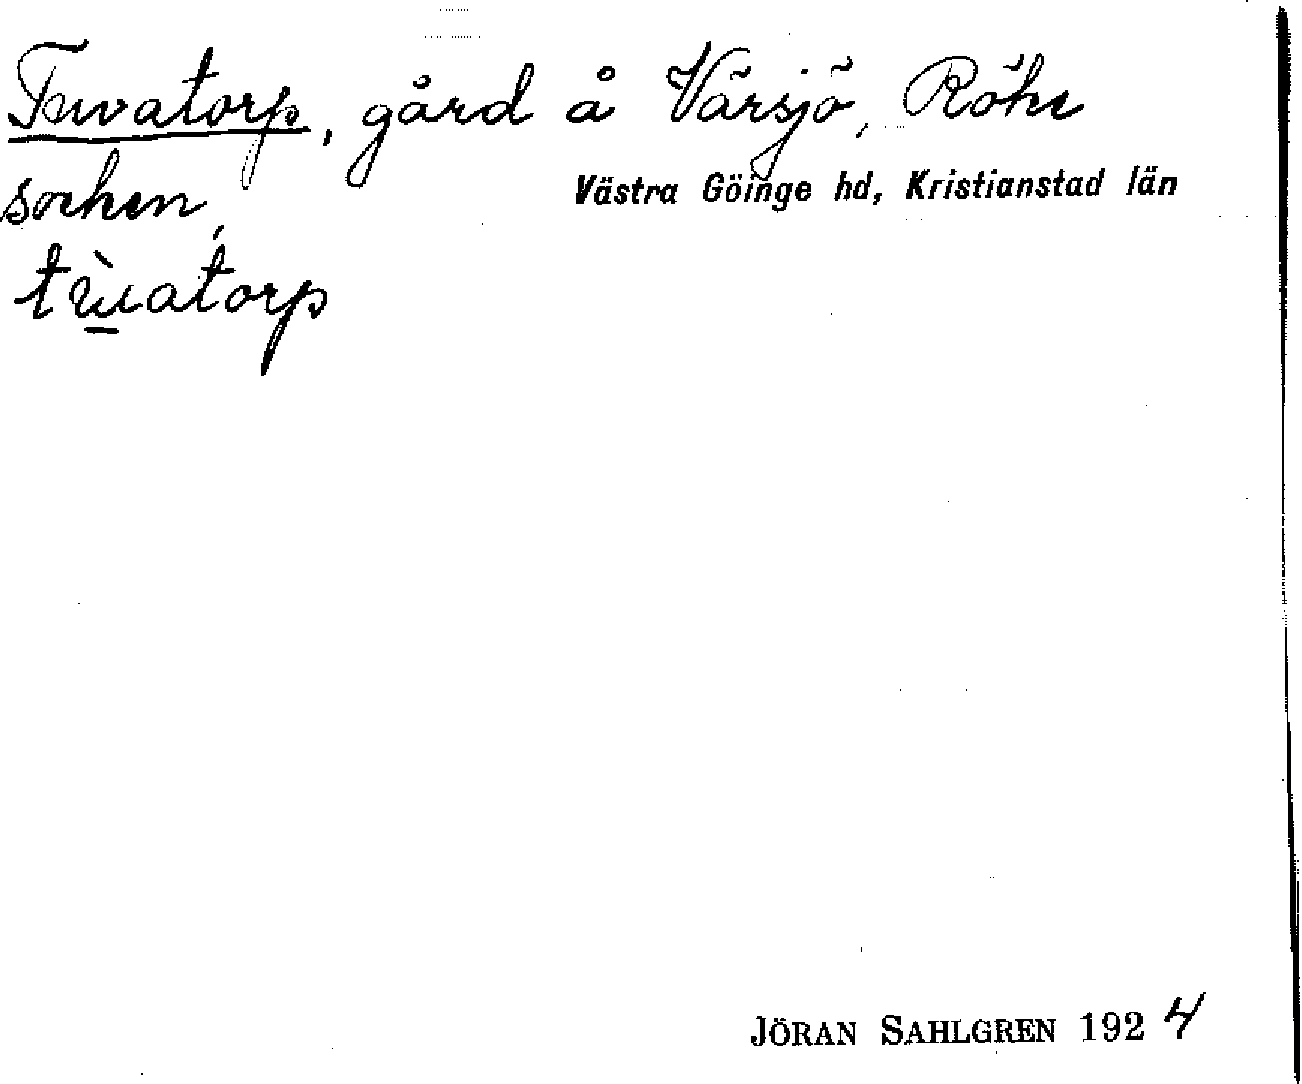 Tuvatorp, gård å Värsjö, Röke
socken,
Västra Göinge hd, Kristianstad län
JÖRAN SAHLGREN 1924